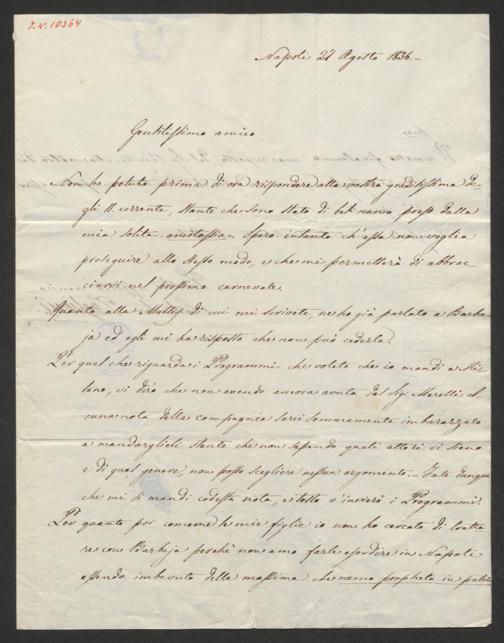 J. N. 10364
Napoli 22 Agosto 1836.—
Gentilissimo amico
Non ho potuto prima di ora rispondere alla vostra graditissima de-
gli 11. corrente, stante che sono stato di bel nuovo preso dalla
mia solita emotossia. Spero intanto ch'essa non voglia
proseguire allo stesso modo, e che mi permetterà di abbrac-
ciarvi nel prossimo carnevale.
Quanto alla Mattey di cui mi scrivete, ne ho già parlato a Barba-
ja ed egli mi ha risposto che non può cederla.
Per quel che riguarda i Programmi che volete che io mandi a Mi-
lano, vi dirò che non avendo ancora avuta da Sigr Merelli al-
cuna nota della compagnia sarei sommamente imbarazzato
a mandarglieli stante che non sapendo quali attori vi sieno
e di qual genere, non posso scegliere nessun argomento... Fate dunque
che mi si mandi codesta nota, e tosto v'invierò i Programmi.
Per quanto poi concerne le mie figlie io non ho cercato di tratta
re con Barbaja perchè non amo farle esordire in Napoli
essendo imbevuto della massima che nemo propheta in patria